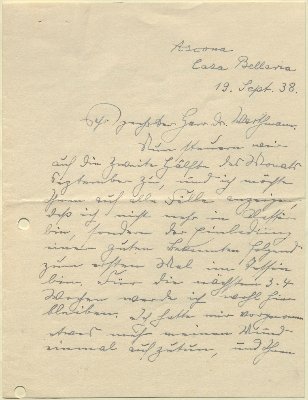 Ascona
Casa Bellaria
19. Sept. 38.
Sehr geehrter Herr Dr. Werthmann
Nun steuern wir
auf die zweite Hälfte des Monats
September zu, und ich möchte
Ihnen auf alle Fälle anzeigen,
daß ich nicht mehr in
bin, sondern der Einladung
einer guten Bekannten folgend
zum ersten Mal im Tessin
bin. Für die nächsten 3-4
Wochen werde ich wohl hier
bleiben. Ich hatte mir vorgenommen
etwas mich meinen Mund
einmal aufzutun, und Ihnen